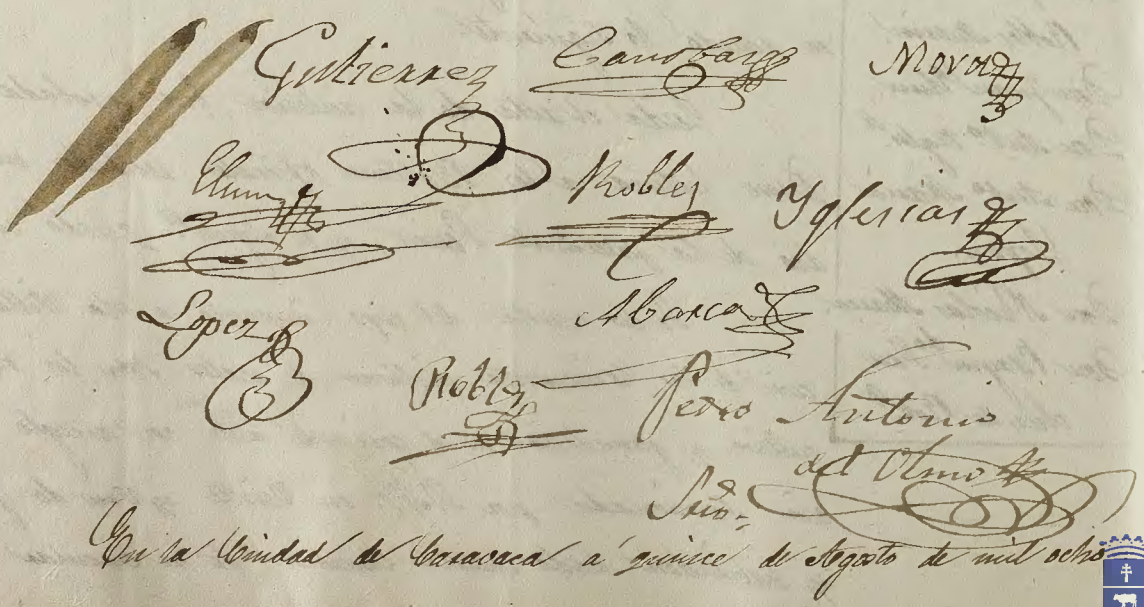 Gutierrez Canobargs Mora
Elum Robles Yglesias
Lopez Abarca
Robles Pedro Antonio
del Olmo
Srio.
En la Ciudad de Caravaca á quince de Agosto de mil ocho